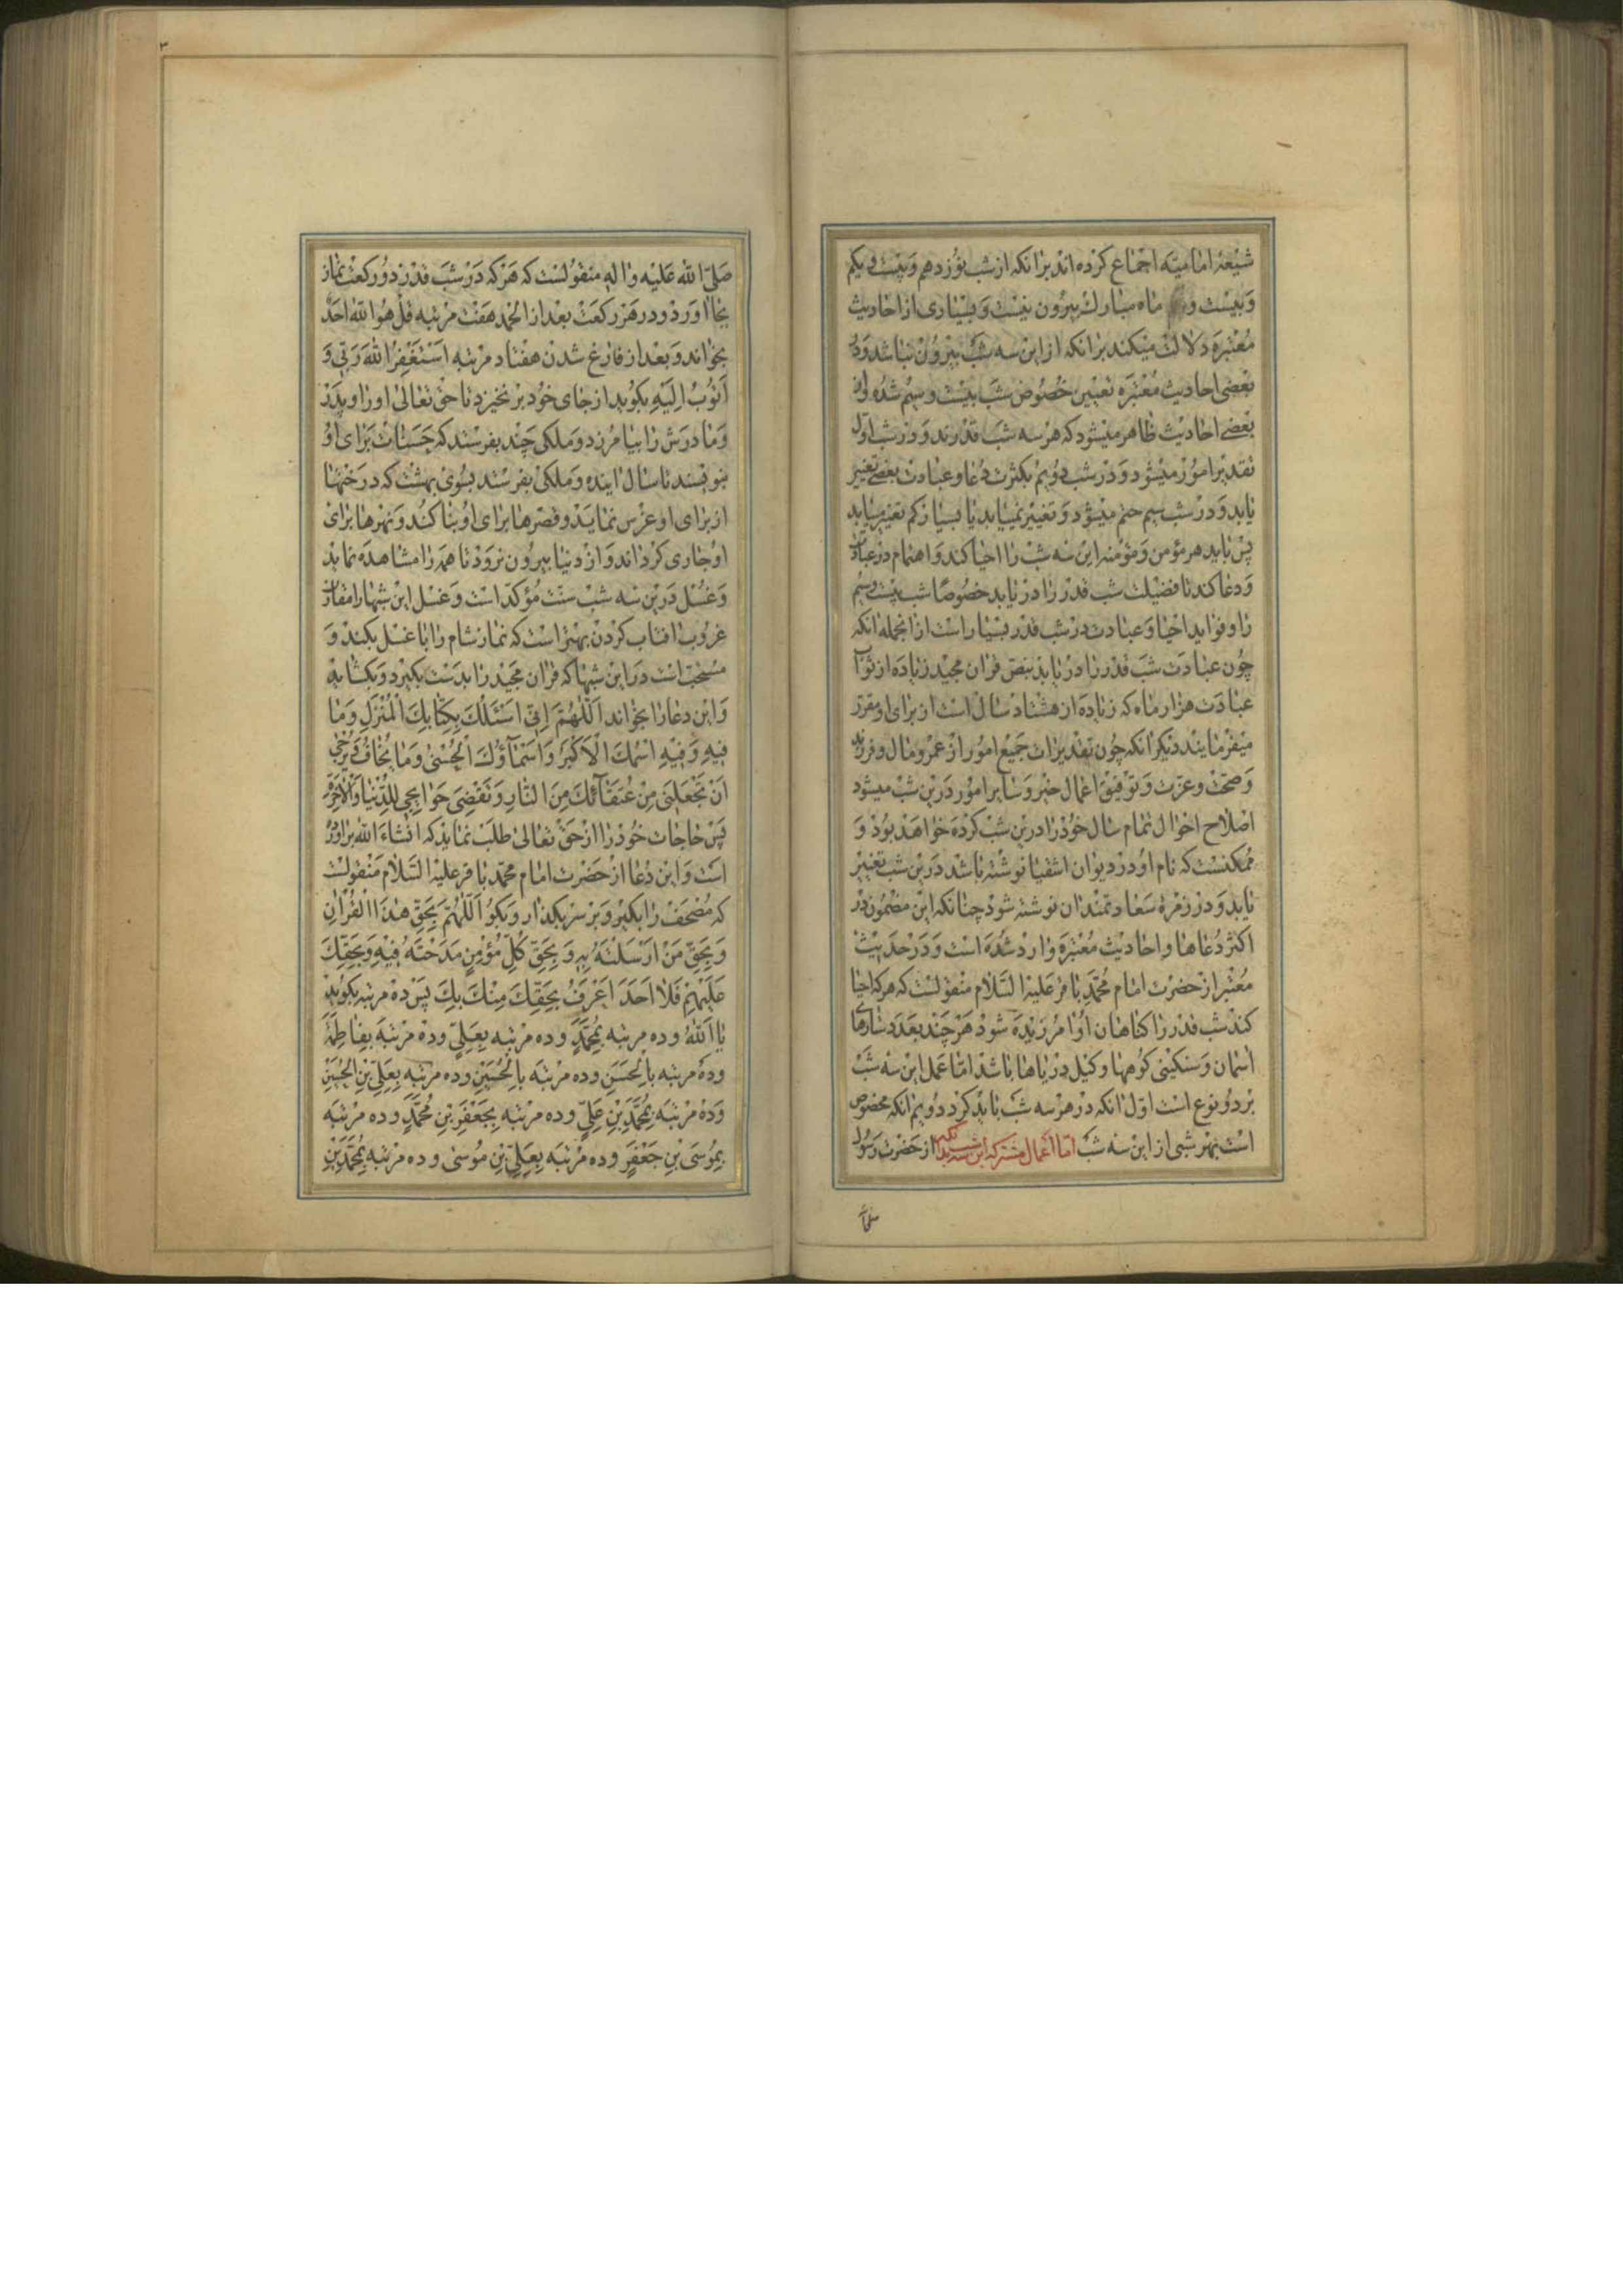 شیعهٔ امامیّه اجماع کرده اند برانکه از شب نوزدهم و بیست و یکم
و بیست و ماه مبارک بیرون نیست و بسیاری از احادیث
معتبره دلالت میکند برانکه ازین سه شب بیرون نباشد و در
بعضی احادیث معتبره تعیین خصوص شب بیست و سیم شده و از
بعضی احادیث ظاهر میشود که هر سه شب قدرند و در شب اول
تقدیر امور میشود و در شب دویم بکثرت دعا و عبادت بعضی تغییر
یابد و در شب سیم حتم میشود و تغییر نمییابد یا بسیار کم تغییر مییابد
پس باید هر مؤمن و مؤمنه این سه شب را احیا کند و اهتمام در عبادت
و دعا کند تا فضیلت شب قدر را دریابد خصوصًا شب بیست و سیم
را و فواید احیا و عبادت در شب قدر بسیار است از انجمله انکه
چون عبادت شب قدر را دریابد بنصّ قران مجید زیاده از ثواب
عبادت هزار ماه که زیاده از هشتاد سال است از برای او مقرر
میفرمایند دیگر انکه چون تقدیرات جمیع امور از عمر و مال و فرزند
و صحّت و عزّت و توفیق اعمال خیر و سایر امور درین شب میشود
اصلاح احوال تمام سال خود را درین شب کرده خواهد بود و
ممکنست که نام او در دیوان اشقیا نوشته باشد درین شب تغییر
یابد و در زمرهٔ سعادتمندان نوشته شود چنانکه این مضمون در
اکثر دعاها و احادیث معتبره وارد شده است و در حدیث
معتبر از حضرت امام محمّد باقر علیه السّلام منقولست که هر که احیا
کند شب قدر را کناهان او امرزیده شود هر چند بعدد ستارهای
آسمان و سنکینی کوهها و کیل دریاها باشد امّا عمل این سه شب
بر دو نوع است اوّل انکه در هر سه شب باید کرد دویم انکه مخصوص
است بهر شبی از این سه شب امّا اعمال مشترکه این سه شب از حضرت رسول
صَلّی الله عَلیْه و اله منقولست که هر که در شب قدر دو رکعت نماز
بجا اورد و در هر رکعت بعد از الحمد هفت مرتبه قل هو الله احد
بخواند و بعد از فارغ شدن هفتاد مرتبه اَسْتَغْفِرُ اللهَ رَبّی وَ
اَتُوبُ اِلَیْهِ بکوید از جای خود بر نخیزد تا حق تعالی او را و پدر
و مادرش را بیامرزد و ملکی چند بفرستد که حسنات برای او
بنویسند تا سال اینده و ملکی بفرستد بسوی بهشت که درختها
از برای او غرس نماید و قصرها برای او بنا کند و نهرها برای
او جاری کرداند و از دنیا بیرون نرود تا همه را مشاهده نماید
و غسل درین سه شب سنت مؤکّد است و غسل این شبها را مقارن
غروب افتاب کردن بهتر است که نماز شام را با غسل بکند و
مستحبّ است در این شبها که قران مجید را بدست بکیرد و بکشاید
و این دعا را بخواند اَللّهُمَّ اِنّی اَسْئَلُكَ بِکِتابِكَ الْمُنْزَلِ وَما
فیهِ وَفیهِ اسْمُكَ الْاَکْبَرُ وَاَسْمآؤُكَ الْحُسْنی وَما یُخافُ وَیُرْجی
اَنْ تَجْعَلَنی مِنْ عُتَقآئِكَ مِنَ النّارِ وَتَقْضِیَ حَوائِجی لِلدُّنْیا وَالْآخِرَةِ
پس حاجات خود را از حق تعالی طلب نماید که انشاء الله براورده
است و این دعا از حضرت امام محمّد باقر علیه السّلام منقولست
که مصحف را بکیر و بر سر بکذار و بکو اَللّهُمَّ بِحَقِّ هٰذَا الْقُرْانِ
وَبِحَقِّ مَنْ اَرْسَلْتَهُ بِهِ وَبِحَقِّ کُلِّ مُؤْمِنٍ مَدَحْتَهُ فیهِ وَبِحَقِّكَ
عَلَیْهِمْ فَلا اَحَدَ اَعْرَفُ بِحَقِّكَ مِنْكَ بِكَ پس ده مرتبه بکوید
یا اَللهُ و ده مرتبه بِمُحَمَّدٍ و ده مرتبه بِعَلِیٍّ و ده مرتبه بِفاطِمَةَ
و ده مرتبه بِالْحَسَنِ و ده مرتبه بِالْحُسَیْنِ و ده مرتبه بِعَلِیِّ بْنِ الْحُسَیْنِ
و ده مرتبه بِمُحَمَّدِ بْنِ عَلِیٍّ و ده مرتبه بِجَعْفَرِ بْنِ مُحَمَّدٍ و ده مرتبه
بِمُوسَی بْنِ جَعْفَرٍ و ده مرتبه بِعَلِیِّ بْنِ مُوسی و ده مرتبه بِمُحَمَّدِ بْنِ